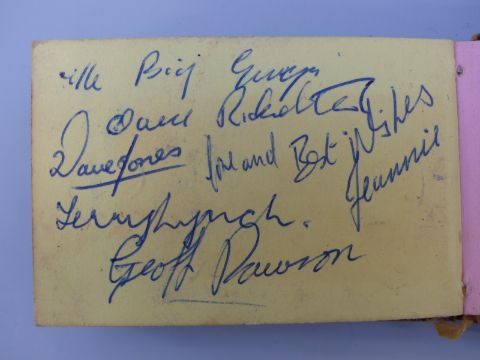 Big George
Dave
Dave Jones
love and Best Wishes
Jeannie
Terry Lynch.
Geoff Dawson